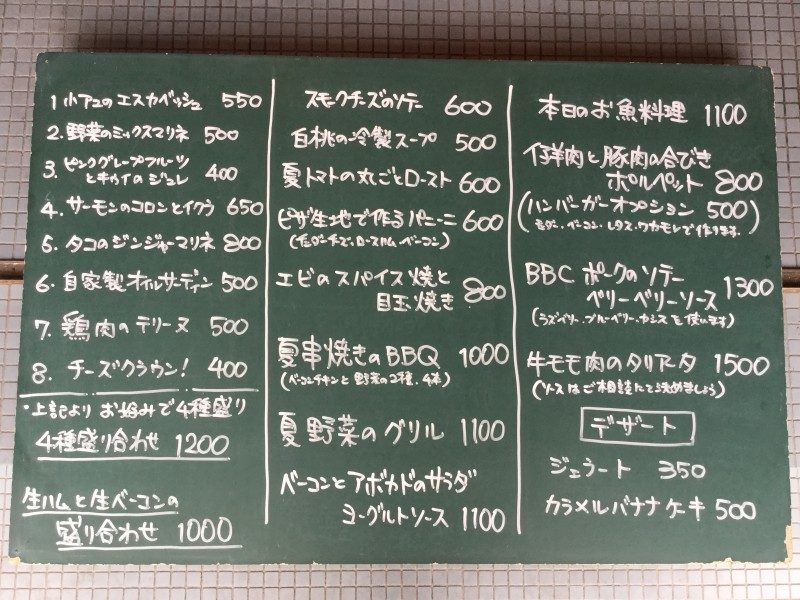 1 小アユのエスカベッシュ 550
2. 野菜のミックスマリネ 500
3. ピンクグレープフルーツ
とキウイのジュレ 400
4. サーモンのコロンとイクラ 650
5. タコのジンジャーマリネ 800
6. 自家製オイルサーディン 500
7. 鶏肉のテリーヌ 500
8. チーズクラウン! 400
・上記より お好みで4種盛り
4種盛り合わせ 1200
生ハムと生ベーコンの
盛り合わせ 1000
スモークチーズのソテー 600
白桃の冷製スープ 500
夏トマトの丸ごとロースト 600
ピザ生地で作るパニーニ 600
(モッツァチーズ・ローストハム・ベーコン)
エビのスパイス焼と
目玉焼き 800
夏串焼きのBBQ 1000
(ベーコンチキンと野菜の2種、4本)
夏野菜のグリル 1100
ベーコンとアボカドのサラダ
ヨーグルトソース 1100
本日のお魚料理 1100
仔羊肉と豚肉の合びき
ポルペット 800
(ハンバーガーオプション 500)
ベーコン、レタス、ワカモレで作ります。
BBC ポークのソテー
ベリーベリーソース 1300
(ラズベリー、ブルーベリー、カシスを使います)
牛モモ肉のタリアータ 1500
(ソースはご相談にて決めましょう)
デザート
ジェラート 350
カラメルバナナケーキ 500